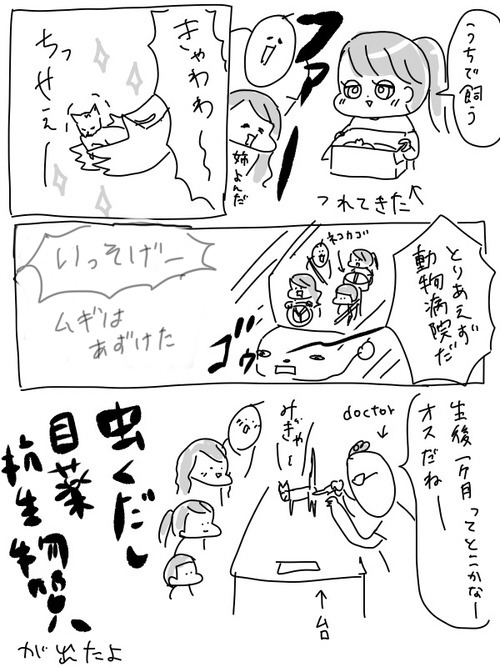 うちで飼う
つれてきた
ファーー
姉よんだ
きゃわわー
ちっせぇー
とりあえず
動物病院だ
ネコカゴ
ゴゥ
いっそげー
ムギは
あずけた
生後一ヶ月ってとこかなー
オスだねー
doctor
みぎゃー
台
虫くだし
目薬
抗生物質
が出たよ